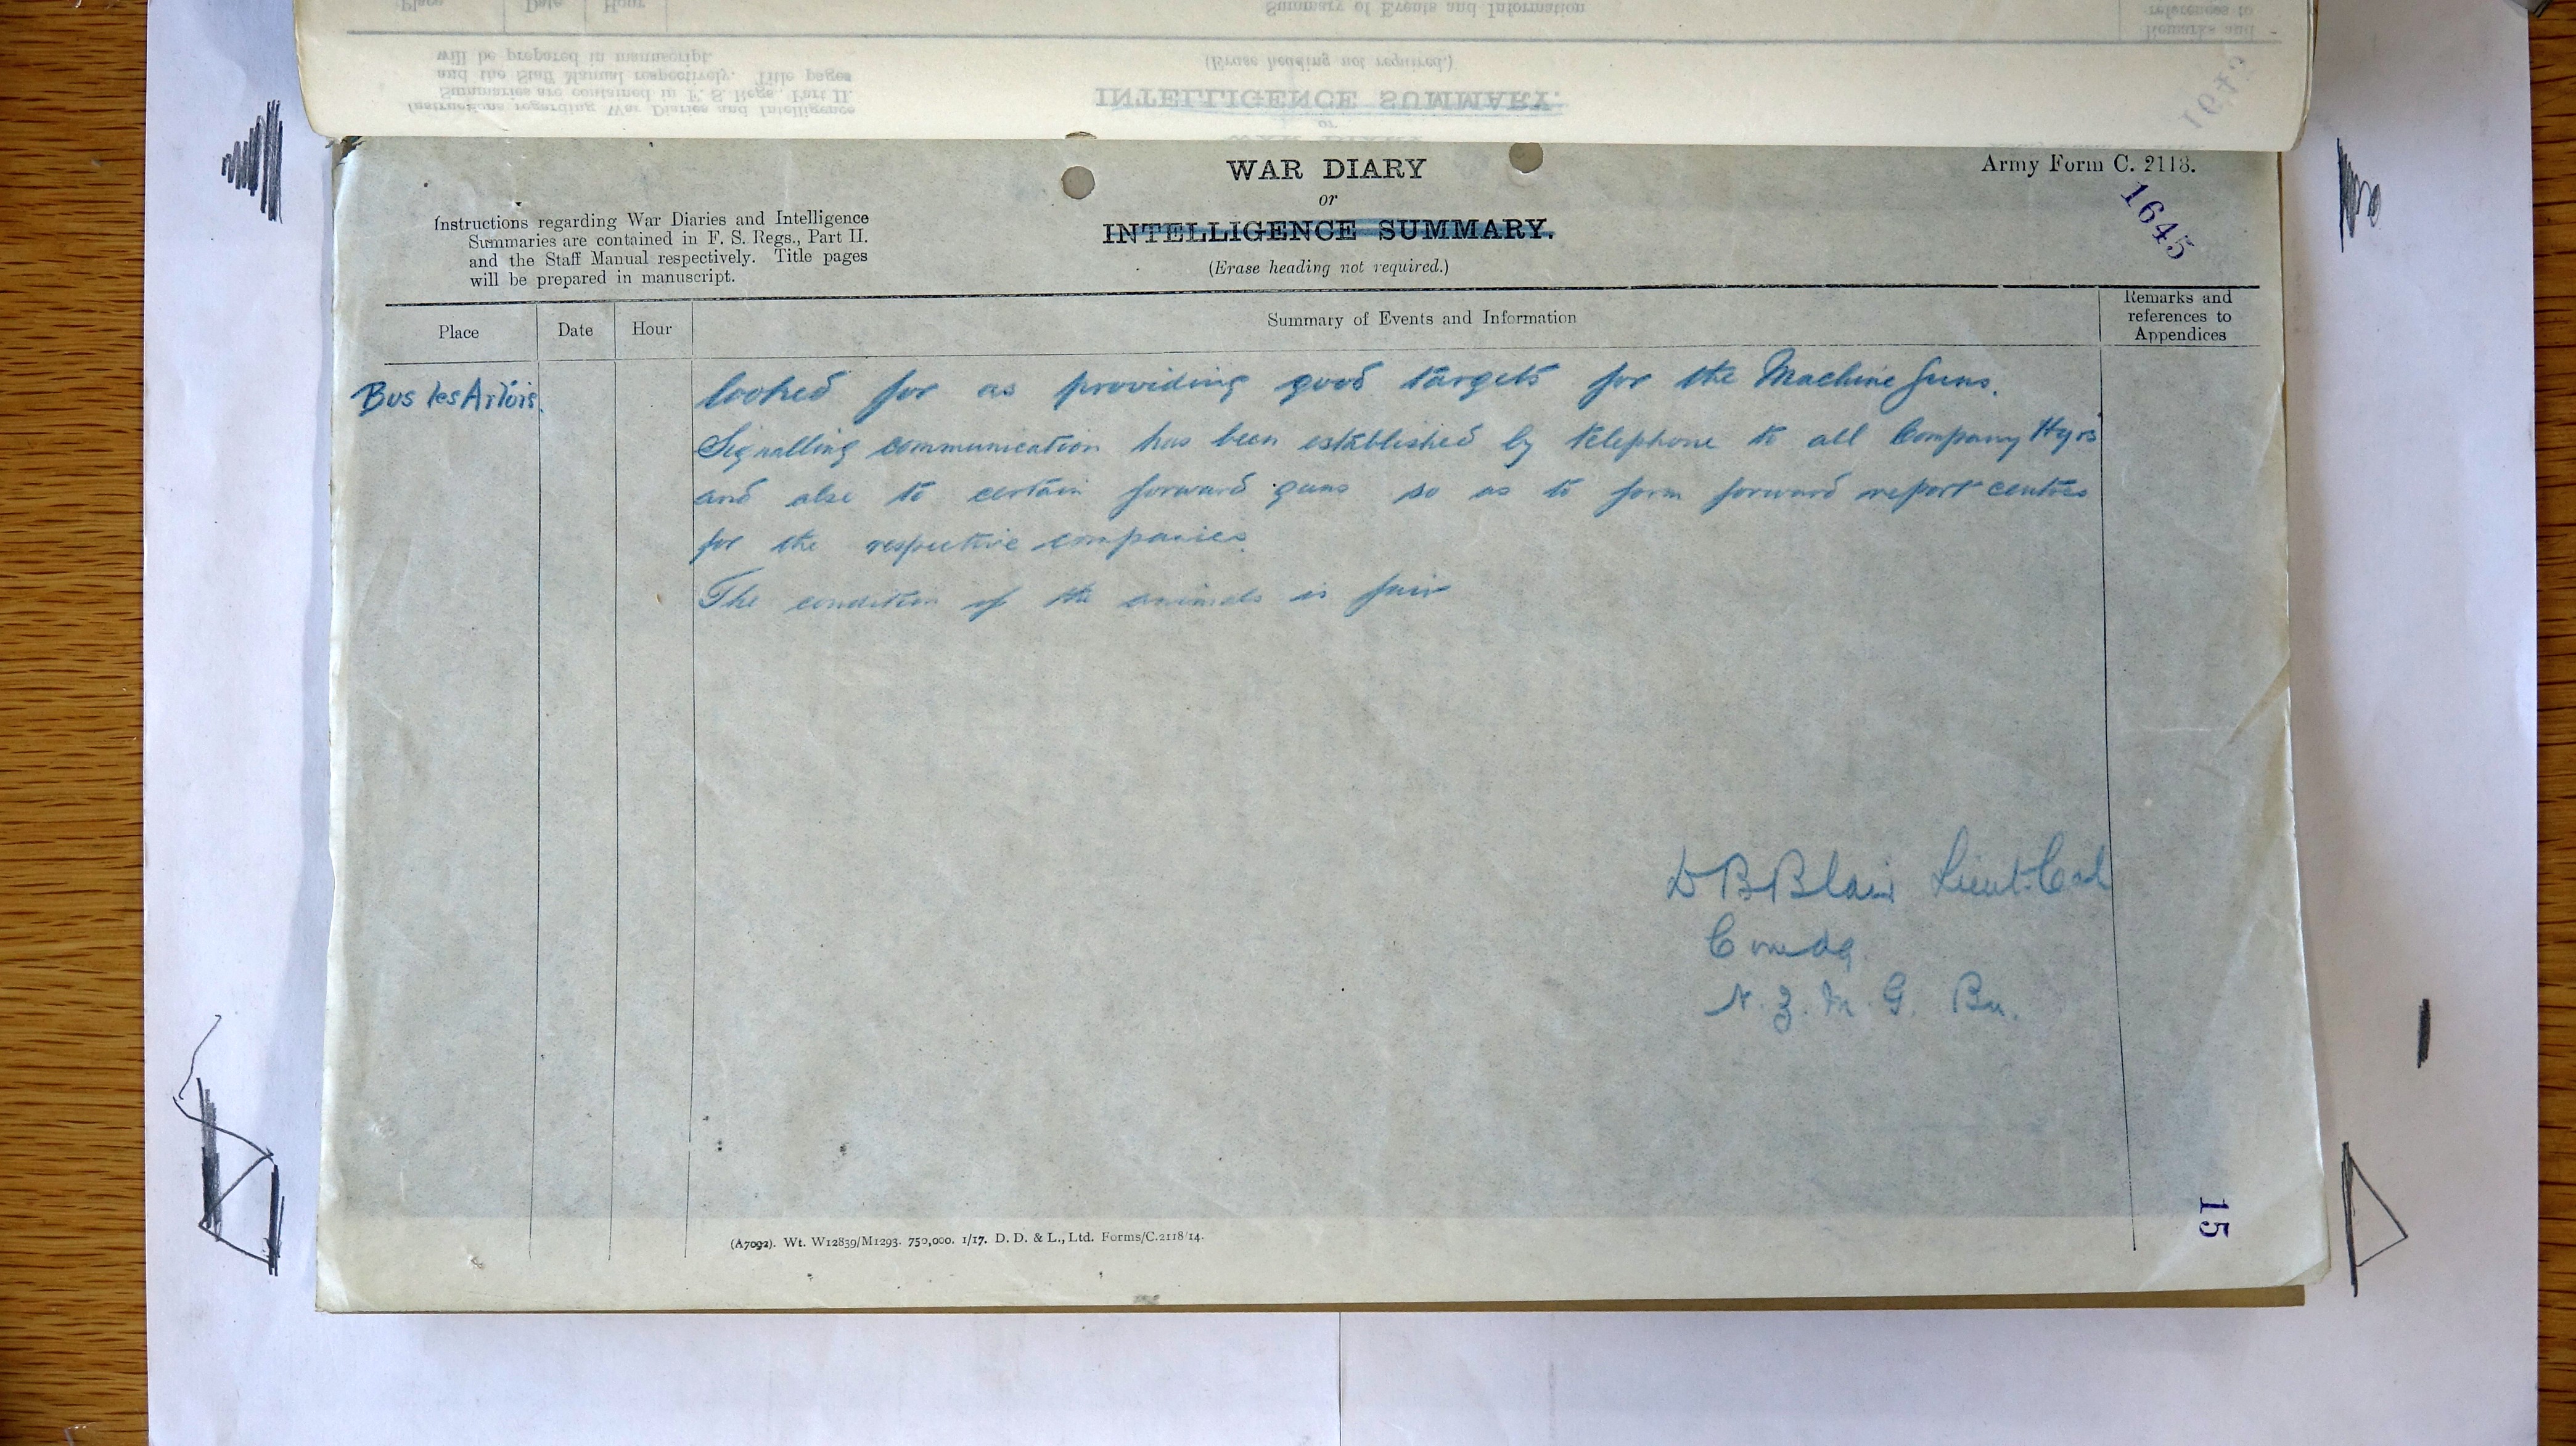 WAR DIARY
or
INTELLIGENCE SUMMARY.
(Erase heading not required.)
Army Form C. 2118.
1645
Instructions regarding War Diaries and Intelligence
Summaries are contained in F. S. Regs., Part II.
and the Staff Manual respectively. Title pages
will be prepared in manuscript.
Place
Date
Hour
Summary of Events and Information
Remarks and
references to
Appendices
Bus les Artois.
looked for as providing good targets for the Machine Guns.
Signalling communication has been established by telephone to all Company Hqrs
and also to certain forward guns so as to form forward report centres
for the respective companies.
The condition of the animals is fair
D B Blair Lieut. Col
Comdg
N. Z. M. G. Bn.
15
(A7092). Wt. W12839/M1293. 750,000. 1/17. D. D. & L., Ltd. Forms/C.2118/14.